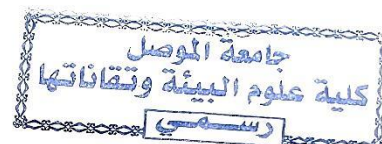 جامعة الموصل
كلية علوم البيئة وتقاناتها
رسمي